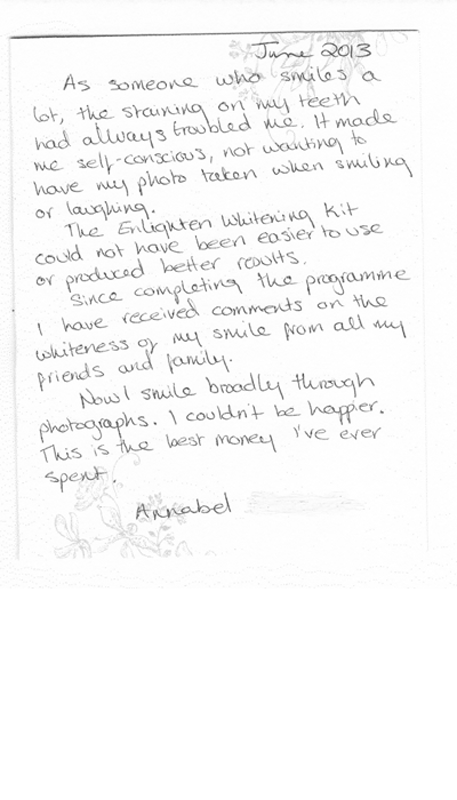 June 2013
As someone who smiles a
lot, the staining on my teeth
had always troubled me. It made
me self-conscious, not wanting to
have my photo taken when smiling
or laughing.
The Enlighten Whitening Kit
could not have been easier to use
or produced better results.
Since completing the programme
I have received comments on the
whiteness of my smile from all my
friends and family.
Now I smile broadly through
photographs. I couldn't be happier.
This is the best money I've ever
spent.
Annabel